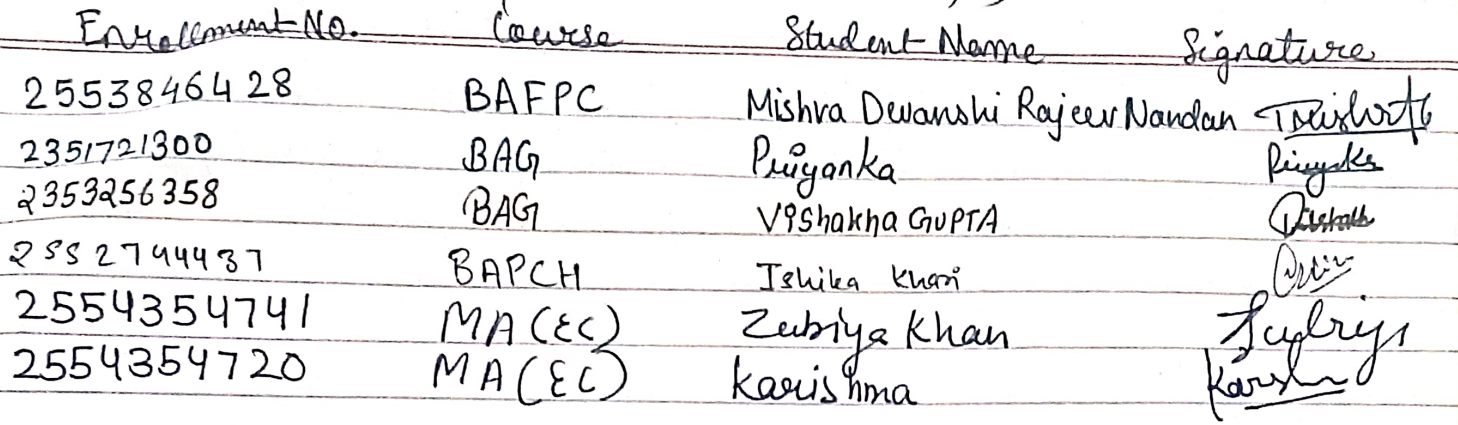 Enrollment No. Course Student Name Signature
2553846428 BAFPC Mishra Devanshi Rajeev Nandan
2351721300 BAG Priyanka Priyanka
2353256358 BAG Vishakha GUPTA
2552744437 BAPCH Ishika Khari
2554354741 MA(EC) Zubiya Khan
2554354720 MA(EC) Karishma